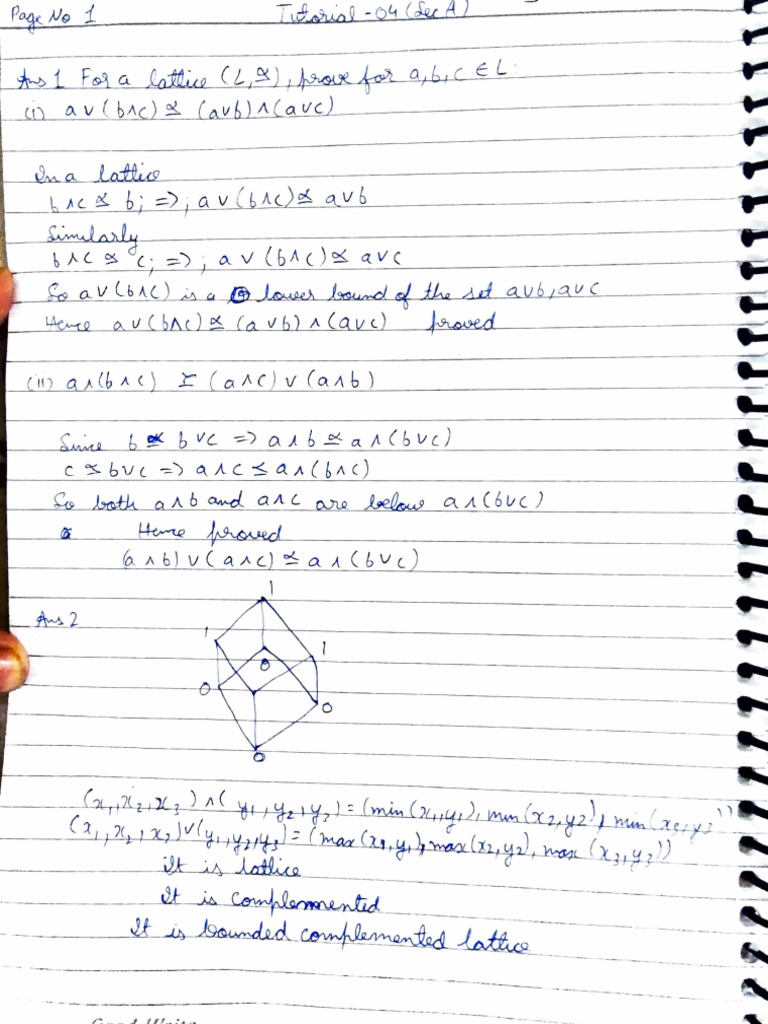 Page No 1
Tutorial - 04 (Sec A)
Ans 1 For a lattice (L, ≼), prove for a, b, c ∈ L.
(i) a ∨ (b ∧ c) ≼ (a ∨ b) ∧ (a ∨ c)
In a lattice
b ∧ c ≼ b; =>; a ∨ (b ∧ c) ≼ a ∨ b
Similarly
b ∧ c ≼ c; =>; a ∨ (b ∧ c) ≼ a ∨ c
So a ∨ (b ∧ c) is a lower bound of the set a ∨ b, a ∨ c
Hence a ∨ (b ∧ c) ≼ (a ∨ b) ∧ (a ∨ c) proved
(ii) a ∧ (b ∧ c) ≽ (a ∧ c) ∨ (a ∧ b)
Since b ≼ b ∨ c => a ∧ b ≼ a ∧ (b ∨ c)
c ≼ b ∨ c => a ∧ c ≤ a ∧ (b ∧ c)
So both a ∧ b and a ∧ c are below a ∧ (b ∨ c)
Hence proved
(a ∧ b) ∨ (a ∧ c) ≼ a ∧ (b ∨ c)
Ans 2
1
1
1
0
0
0
0
(x₁, x₂, x₃) ∧ (y₁, y₂, y₃) = (min(x₁, y₁), min(x₂, y₂), min(x₃, y₃))
(x₁, x₂, x₃) ∨ (y₁, y₂, y₃) = (max(x₁, y₁), max(x₂, y₂), max(x₃, y₃))
It is lattice
It is complemented
It is bounded complemented lattice